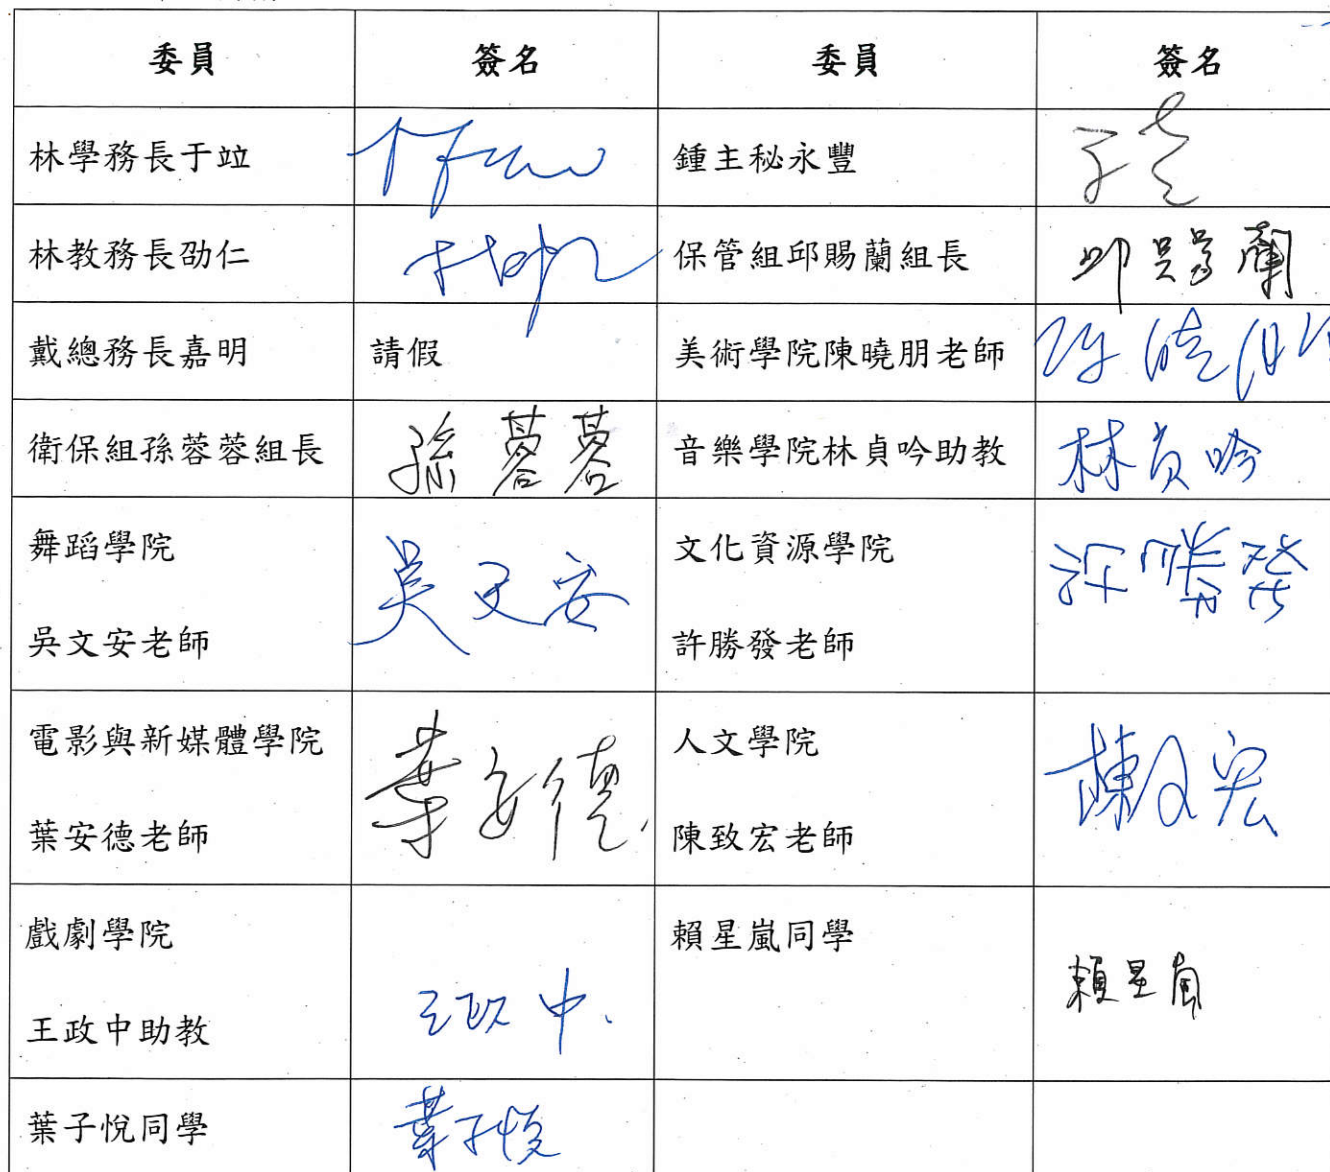 委員 簽名 委員 簽名
林學務長于竝 鍾主秘永豐
林教務長劭仁 保管組邱賜蘭組長 邱賜蘭
戴總務長嘉明 請假 美術學院陳曉朋老師 陳曉朋
衛保組孫蓉蓉組長 孫蓉蓉 音樂學院林貞吟助教 林貞吟
舞蹈學院 吳文安 文化資源學院 許勝發
吳文安老師 許勝發老師
電影與新媒體學院 葉安德 人文學院 陳致宏
葉安德老師 陳致宏老師
戲劇學院 賴星嵐同學
王政中助教 王政中 賴星嵐
葉子悅同學 葉子悅